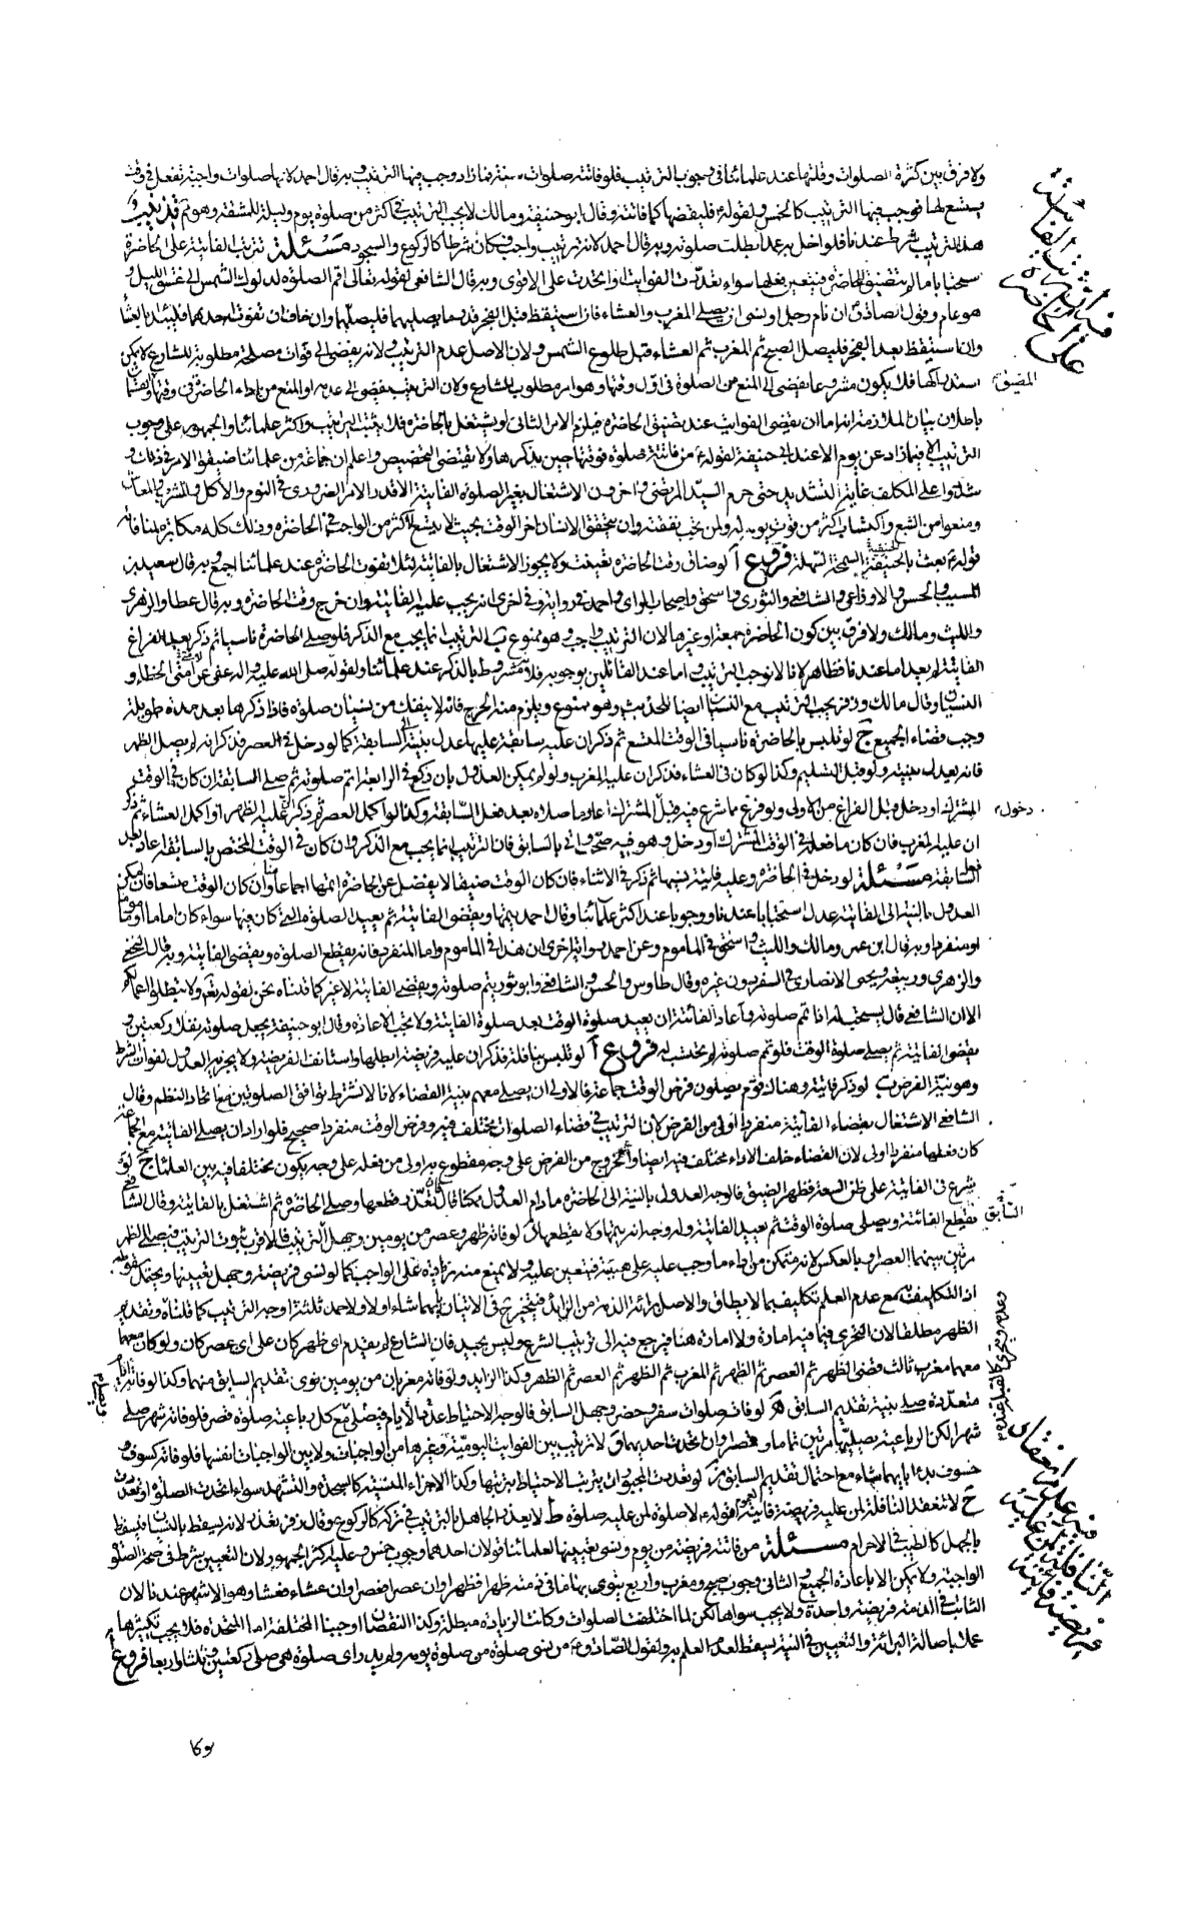 ولا فرق بين كثرة الصلوات وقلتها عند علمائنا في وجوب الترتيب فلو فاتته صلوات سنة فما زاد وجب فيها الترتيب وبه قال احمد لانها صلوات واجبة تفعل في وقت
يتسع لها فوجب فيها الترتيب كالخمس ولقوله ع فليقضها كما فاتته وقال ابو حنيفة ومالك لا يجب الترتيب في اكثر من صلوة يوم وليلة للمشقة وهو ثم تذنيب و
هذا الترتيب شرط عندنا فلو اخل به عمدا بطلت صلوته وبه قال احمد لانه ترتيب واجب فكان شرطا كالركوع والسجود مسئلة ترتيب الفايتة على الحاضرة
استحبابا ما لم يتضيق الحاضرة فيتعين فعلها سواء تعددت الفوايت او اتحدت على الاقوى وبه قال الشافعي لقوله تعالى اقم الصلوة لدلوك الشمس الى غسق الليل و
هو عام وقول الصادق ع ان نام رجل او نسي ان يصلي المغرب والعشاء فان استيقظ قبل الفجر قدر ما يصليهما فليصلهما وان خاف ان تفوت احدهما فليبدأ بالعشاء
وان استيقظ بعد الفجر فليصل الصبح ثم المغرب ثم العشاء قبل طلوع الشمس ولان الاصل عدم الترتيب ولانه يفضي الى فوات مصلحة مطلوبة للشارع لا يمكن
استدراكها فلا يكون مشروعا يفضي الى المنع من الصلوة في اول وقتها وهو امر مطلوب للشارع ولان الترتيب يفضي الى عدمه او المنع من اداء الحاضرة في وقتها
باطلان بيان الملازمة انه اما ان يقضى الفوايت عند تضيق الحاضرة فيلزم الامر الثاني او يشتغل بالحاضرة فلا يثبت الترتيب واكثر علمائنا والجمهور على وجوب
الترتيب الا فيما زاد عن يوم الا عند ابي حنيفة لقوله ع من فاتته صلوة فوقتها حين يذكرها ولا يقتضي التخصيص واعلم ان جماعة من علمائنا ضيقوا الامر في ذلك و
شددوا على المكلف غاية التشديد حتى حرم السيد المرتضى وآخرون الاشتغال بغير الصلوة الفايتة الا قدر الامر الضروري في النوم والاكل والشرب والمعاش
ومنعوا من الشبع واكتساب اكثر من قوت يومه له ولمن يجب نفقته وان يتحقق الانسان اخر الوقت بحيث لا يتسع لاكثر من الواجب في الحاضرة وذلك كله مكابرة لمنافاته
قوله ع بعثت بالحنيفية السمحة السهلة فروع آ لو ضاق وقت الحاضرة تعينت ولا يجوز الاشتغال بالفايتة لئلا تفوت الحاضرة عند علمائنا اجمع وبه قال سعيد بن
المسيب والحسن والاوزاعي والشافعي والثوري واسحق واصحاب الراي واحمد في رواية وفي اخرى انه يجب عليه الفايتة وان خرج وقت الحاضرة وبه قال عطا والزهري
والليث ومالك ولا فرق بين كون الحاضرة جمعة او غيرها لان الترتيب واجب وهو ممنوع ب الترتيب انما يجب مع الذكر فلو صلى الحاضرة ناسيا ثم ذكر بعد الفراغ
الفايتة لم يعد اما عندنا فظاهر لانا لا نوجب الترتيب واما عند القائلين بوجوبه فلانه مشروط بالذكر عند علمائنا ولقوله صلى الله عليه واله عفي عن امتي الخطاء و
النسيان وقال مالك وزفر يجب الترتيب مع النسيان ايضا للحديث وهو ممنوع ويلزم منه الحرج فانه لا ينفك من نسيان صلوة فاذا ذكرها بعد مدة طويلة
وجب قضاء الجميع ج لو تلبس بالحاضرة ناسيا في الوقت المتسع ثم ذكر ان عليه سابقة عليها عدل بنيته الى السابقة كما لو دخل في العصر فذكر انه لم يصل الظهر
فانه يعدل بنيته ولو قبل التسليم وكذا لو كان في العشاء فذكر ان عليه المغرب ولو لم يمكن العدول بان ركع في الرابعة اتم صلوته ثم صلى السابقة ان كان في الوقت
المشترك او دخل قبل الفراغ من الاولى ولو فرغ مما شرع فيه قبل المشترك اعاد ما صلاه بعد فعل السابقة وكذا لو اكمل العصر ثم ذكر ان عليه الظهر او اكمل العشاء ثم ذكر
ان عليه المغرب فان كان ما فعله في الوقت المشترك او دخل وهو فيه صح واتى بالسابق فان الترتيب انما يجب مع الذكر وان كان في الوقت المختص بالسابقة اعاد بعد
فعل السابقة مسئلة لو دخل في الحاضرة وعليه فايتة نسيها ثم ذكر في الاثناء فان كان الوقت ضيقا لا يفضل عن الحاضرة اتمها اجماعا منا وان كان الوقت متسعا فان امكن
العدول بالنية الى الفايتة عدل استحبابا عندنا ووجوبا عند اكثر علمائنا وقال احمد يتمها ويقضي الفايتة ثم يعيد الصلوة التي كان فيها سواء كان اماما او ماموما
او منفردا وبه قال ابن عمر ومالك والليث واسحق في الماموم وعن احمد رواية اخرى ان هذا في الماموم واما المنفرد فانه يقطع الصلوة ويقضي الفايتة وبه قال النخعي
والزهري وربيعة ويحيى الانصاري في السفر دون غيره وقال طاوس والحسن والشافعي وابو ثور يتم صلوته ويقضي الفايتة لا غير كما قلناه نحن لقوله تعالى ولا تبطلوا اعمالكم
الا ان الشافعي قال يستحب له اذا تم صلوته واعاد الفائتة ان يعيد صلوة الوقت بعد صلوة الفايتة ولا يجب الاعادة وقال ابو حنيفة يجعل صلوته نفلا ركعتين و
يقضي الفايتة ثم يصلي صلوة الوقت فلو تم صلوته لم يحتسب له فروع آ لو تلبس بنافلة فذكر ان عليه فريضة ابطلها واستانف الفريضة ولا يجزيه العدول لفوات الشرط
وهو نية الفرض ب لو ذكر فايتة وهناك قوم يصلون فرض الوقت جماعة فالاولى ان يصلي معهم بنية القضاء لانا لا نشترط توافق الصلوتين مع اتحاد النظم وقال
الشافعي الاشتغال بقضاء الفايتة منفردا اولى من الفرض لان الترتيب في قضاء الصلوات مختلف فيه وفرض الوقت منفردا صحيح فلو اراد ان يصلي الفايتة مع الجماعة
كان فعلها منفردا اولى لان القضاء خلف الاداء مختلف فيه ايضا والخروج من الفرض على وجه مقطوع به اولى من فعله على وجه يكون مختلفا فيه بين العلماء ج لو
شرع في الفايتة على ظن السعة فظهر الضيق فالوجه العدول بالنية الى الحاضرة ما دام العدول ممكنا فان تعذر قطعها وصلى الحاضرة ثم اشتغل بالفايتة وقال الشافعي
يقطع الفائتة ويصلي صلوة الوقت ثم يعيد الفايتة وله وجه انه يتمها ولا يقطعها د لو فاته ظهر وعصر من يومين وجهل الترتيب فالاقرب ثبوت الترتيب فيصلي الظهر
مرتين بينهما العصر او بالعكس لانه متمكن من اداء ما وجب عليه على هيئته فتعين عليه ولا يمنع منه زيادة على الواجب كما لو نسي فريضة وجهل تعيينها ويحتمل سقوطه
اذ التكليف به مع عدم العلم تكليف بما لا يطاق والاصل براءة الذمة من الزائد فيتخير في الاتيان بايهما شاء اولا ولاحمد ثلثة اوجه الترتيب كما قلناه وتقديم
الظهر مطلقا لان التحري فيما فيه امارة ولا امارة هنا فيرجع فيه الى ترتيب الشرع وليس بجيد فان الشارع لم يقدم اي ظهر كان على اي عصر كان ولو كان معهما
معهما مغرب ثالث قضى الظهر ثم العصر ثم الظهر ثم المغرب ثم الظهر ثم العصر ثم الظهر وكذا الزايد ولو فاته مغربان من يومين نوى تقديم السابق منهما وكذا لو فاته ايام
متعددة صلى بنية تقديم السابق ه لو فاته صلوات سفر وحضر وجهل السابق فالوجه الاحتياط عددا بالايام فيصلي مع كل رباعية صلوة قصر فلو فاته شهر صلى
شهرا لكن الرباعية يصليها مرتين تماما وقصرا وان اتحدت احديهما و لا ترتيب بين الفوايت اليومية وغيرها من الواجبات ولا بين الواجبات انفسها فلو فاته كسوف و
خسوف بدأ بايهما شاء مع احتمال تقديم السابق ز لو تعددت المجبورات ترتب الاحتياط بترتبها وكذا الاجزاء المنسية كالسجدة والتشهد سواء اتحدت الصلوة او تعددت
ح لا تنعقد النافلة لمن عليه فريضة فايتة لعموم قوله ع لا صلوة لمن عليه صلوة ط لا يعذر الجاهل بالترتيب في تركه كالركوع وقال زفر يعذر لانه يسقط بالنسيان فيسقط
بالجهل كالطيب في الاحرام مسئلة من فاتته فريضة من يوم ونسي تعيينها لعلمائنا قولان احدهما وجوب خمس وعليه اكثر الجمهور لان التعيين شرط في صحة الصلوة
الواجبة ولا يمكن الا باعادة الجميع والثاني وجوب صبح ومغرب واربع ينوي بها ما في ذمته ان ظهرا فظهرا وان عصرا فعصرا وان عشاء فعشاء وهو الاشهر عندنا لان
الثابت في الذمة فريضة واحدة ولا يجب سواها لكن لما اختلفت الصلوات وكانت الزيادة مبطلة وكذا النقصان اوجبنا المختلفة اما المتحدة فلا يجب تكثيرها
عملا باصالة البرائة والتعيين في النية يسقط لعدم العلم به ولقول الصادق ع من نسي صلوة من صلوة يومه ولم يدر اي صلوة هي صلى ركعتين وثلثا واربعا فروع
المضيق
دخول
السابق
النافلة لمن عليه
فريضة فايتة